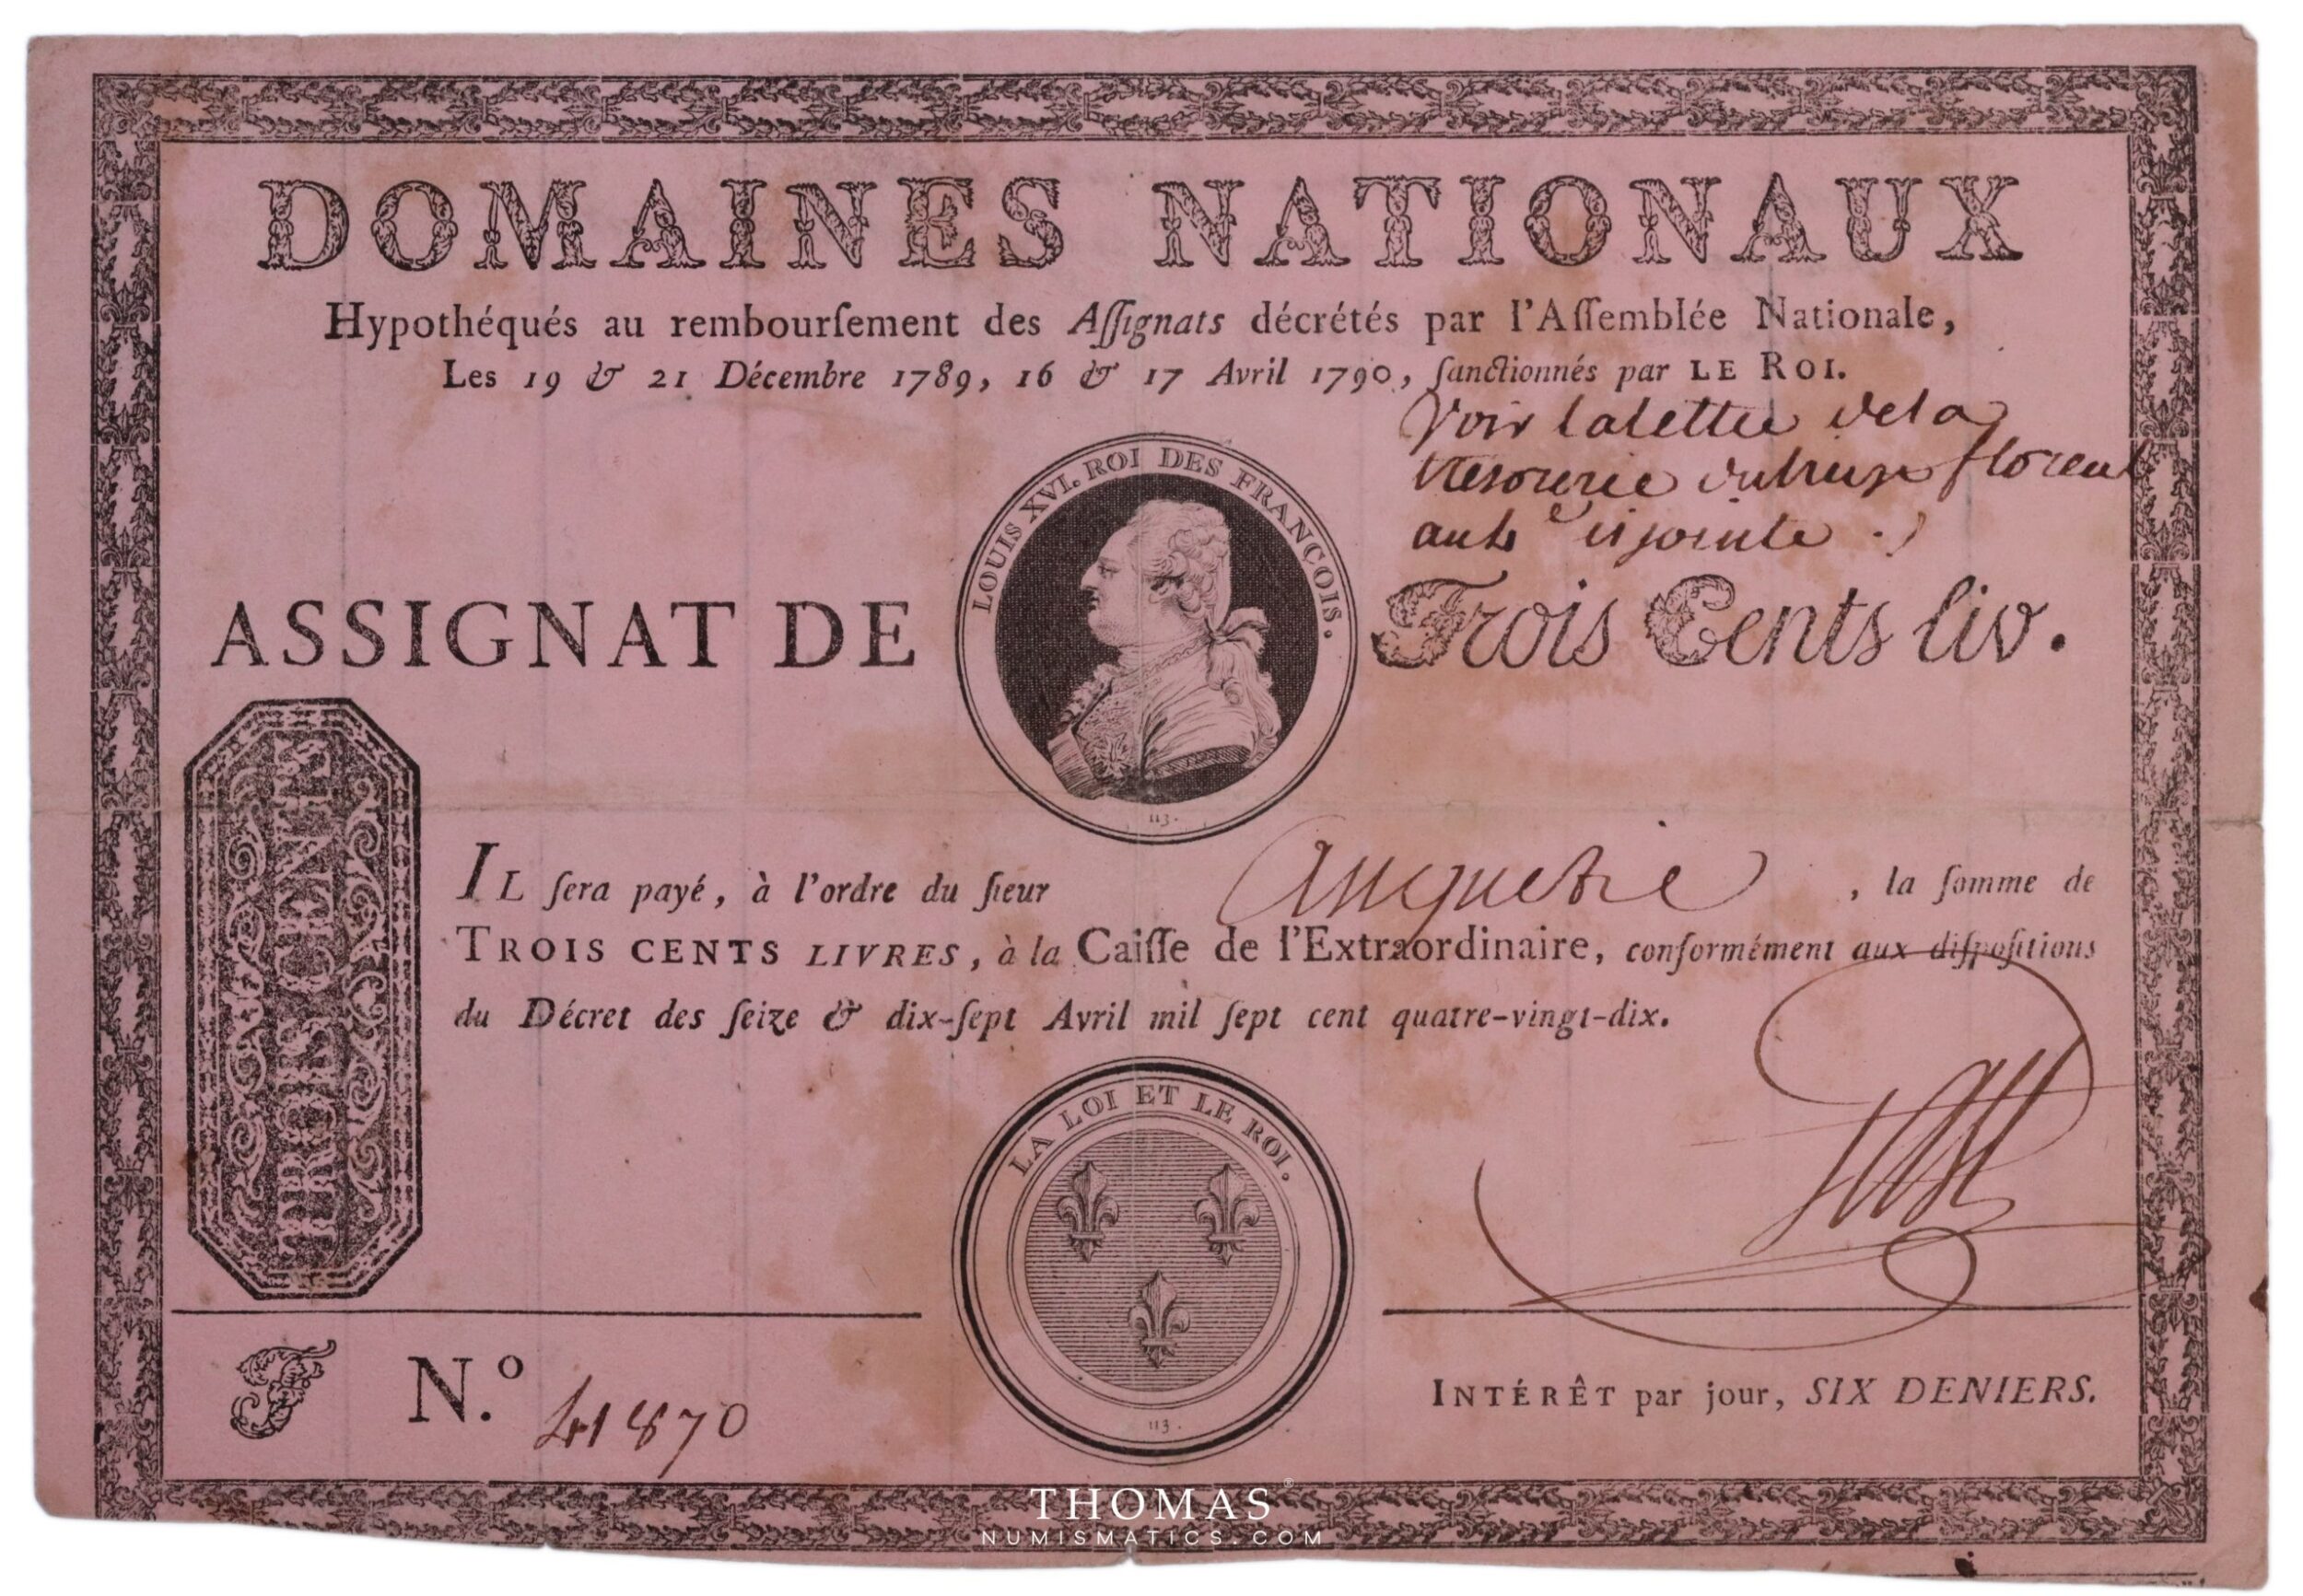 DOMAINES NATIONAUX
Hypothéqués au rembourſement des Aſſignats décrétés par l'Aſſemblée Nationale,
Les 19 & 21 Décembre 1789, 16 & 17 Avril 1790, ſanctionnés par LE ROI.
Voir lalettre dela
tresorerie florent
jointe
LOUIS XVI. ROI DES FRANÇOIS.
ASSIGNAT DE
Trois Cents liv.
113.
TROIS CENTS
IL ſera payé, à l'ordre du ſieur , la ſomme de
TROIS CENTS LIVRES, à la Caiſſe de l'Extraordinaire, conformément aux diſpoſitions
du Décret des ſeize & dix-ſept Avril mil ſept cent quatre-vingt-dix.
LA LOI ET LE ROI.
113.
F N.º 41870
INTÉRÊT par jour, SIX DENIERS.
THOMAS®
NUMISMATICS.COM